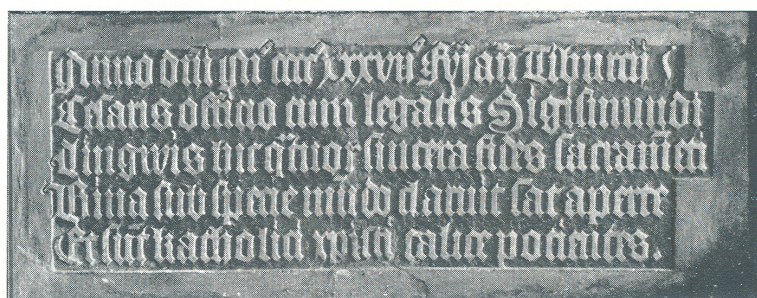 Anno dñi mº ccccº xxxvii f vj añ Tiburcii
Cesaris officio cum legatis Sigismundi
Lingwis in qtuor sincera fides sacramẽti
Bina sub specie mũdo claruit sat aperte
Et sũt katholici xpisti calice potientes.